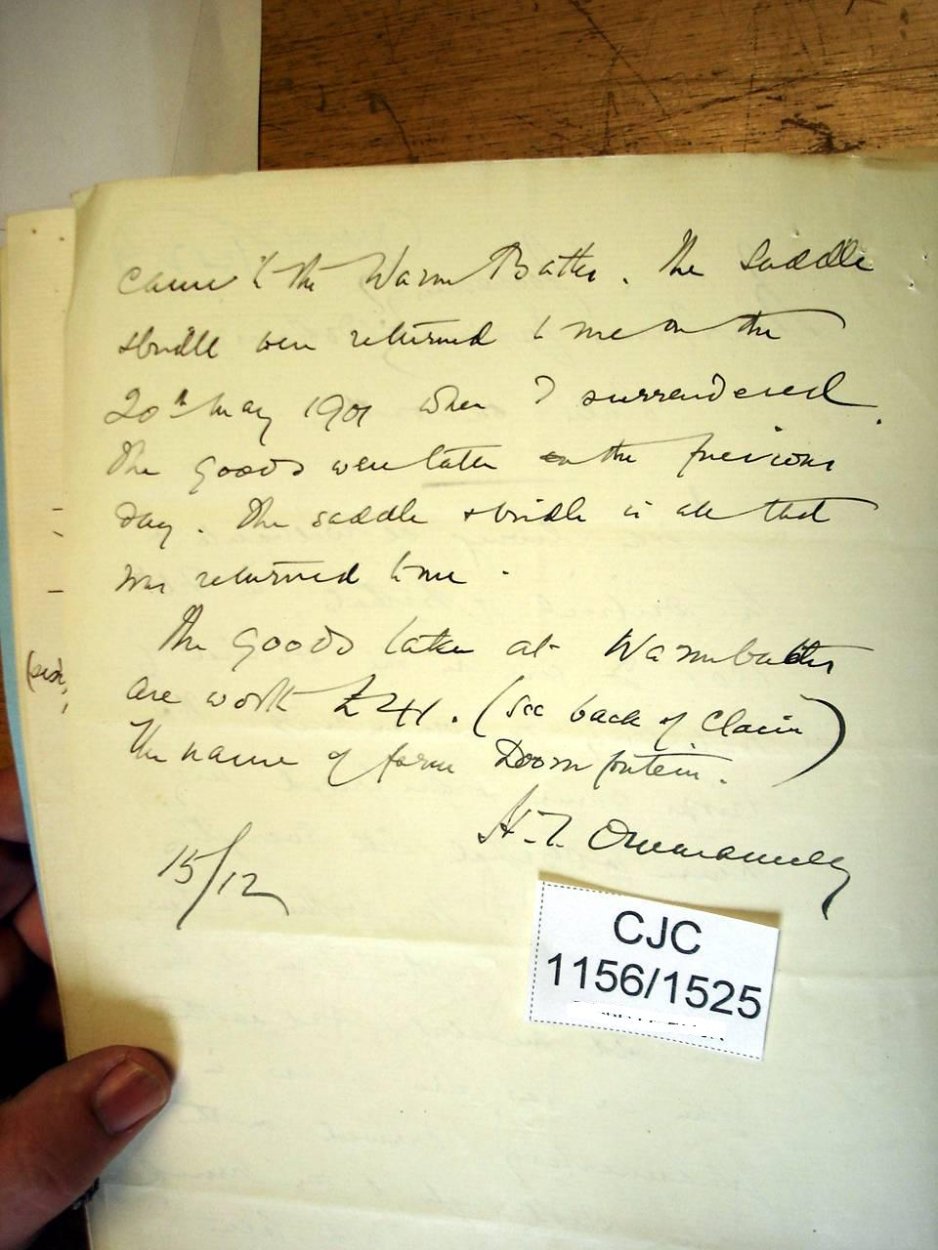 came to the Warm Baths. The Saddle
& bridle were returned to me on the
20th May 1901 when I surrendered.
The goods were taken on the previous
day. The saddle & bridle is all that
was returned to me.
The goods taken at Warmbaths
are worth £241. (See back of Claim)
The name of farm Doornfontein.
H.T. Ommanney
15/12
CJC
1156/1525